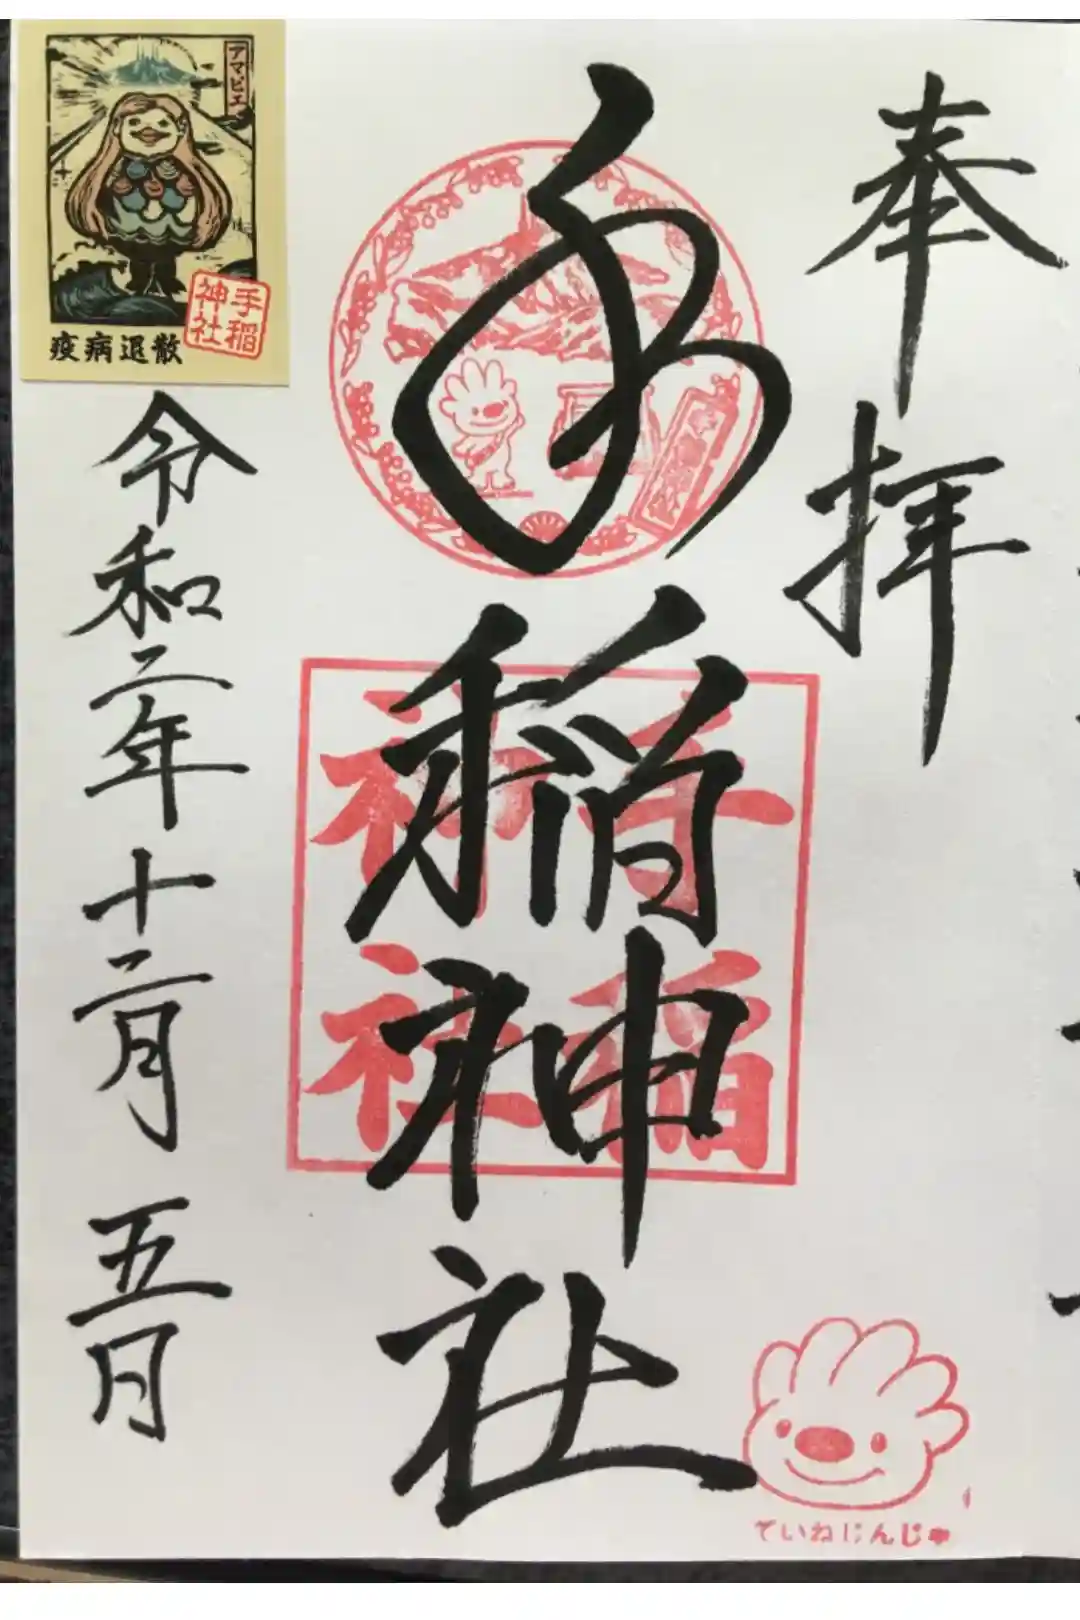 奉拝
手稲神社
令和二年十二月五日
アマビエ
疫病退散
手稲
神社
手稲
神社
ていねじんじゃ